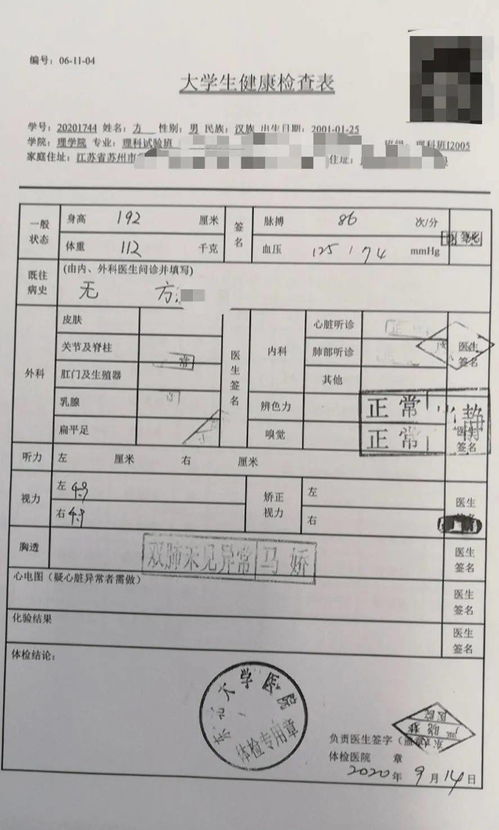 编号: 06-11-04
大学生健康检查表
学号: 20201744 姓名: 方 性别: 男 民族: 汉族 出生日期: 2001-01-25
学院: 理学院 专业: 理科试验班 班级: 理科班I2005
家庭住址: 江苏省苏州市 住址:
一般状态 身高 192 厘米 签名 脉搏 86 次/分
体重 112 千克 血压 125 174 mmHg
既往病史 (由内、外科医生问诊并填写)
无 方
外科 皮肤 医生签名 内科 心脏听诊 医生签名
关节及脊柱 肺部听诊
肛门及生殖器 其他
乳腺 辨色力 正常 医生签名
扁平足 嗅觉 正常
听力 左 厘米 右 厘米
视力 左 4.9 矫正视力 左 医生签名
右 4.9 右
胸透 双肺未见异常 马娇 医生签名
心电图 (疑心脏异常者需做) 医生签名
化验结果 医生签名
体检结论:
大学医院
体检专用章
负责医生签字
体检医院 章
2020年 9月14日